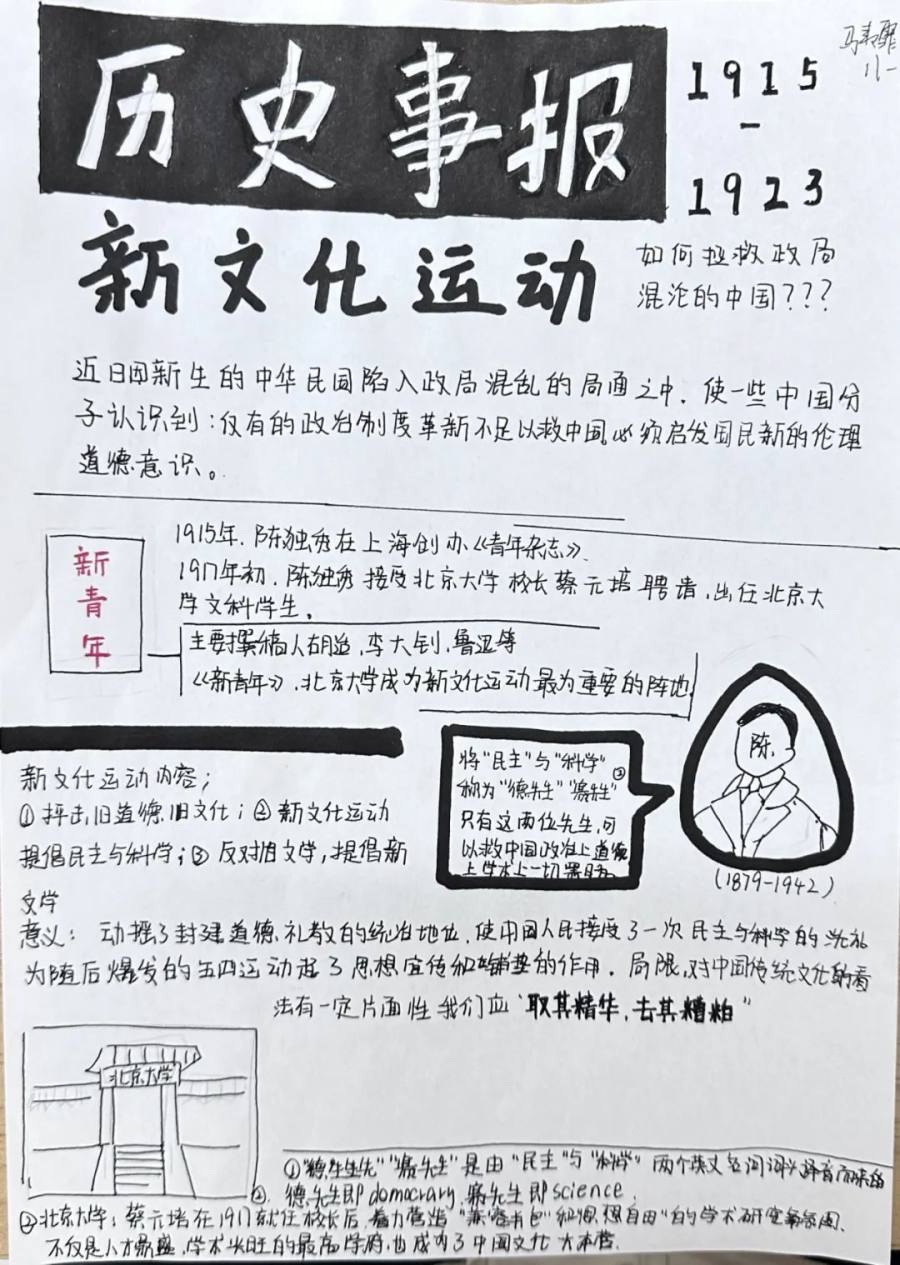 历史事报
1915
-
1923
新文化运动
如何拯救政局
混沌的中国???
近日因新生的中华民国陷入政局混乱的局面之中.使一些中国分
子认识到:仅有的政治制度革新不足以救中国,必须启发国民新的伦理
道德意识。
新
青
年
1915年.陈独秀在上海创办《青年杂志》.
1917年初.陈独秀接受北京大学校长蔡元培聘请,出任北京大
学文科学生.
主要撰稿人胡适,李大钊,鲁迅等
《新青年》,北京大学成为新文化运动最为重要的阵地.
新文化运动内容;
①抨击旧道德旧文化;②新文化运动
提倡民主与科学;③反对旧文学,提倡新
文学
将"民主"与"科学"
称为"德先生""赛先生"
只有这两位先生,可
以救中国政治上道德
上学术上一切黑暗
陈.
(1879-1942)
意义: 动摇了封建道德礼教的统治地位,使中国人民接受了一次民主与科学的洗礼
为随后爆发的五四运动起了思想宣传和铺垫的作用.局限,对中国传统文化的看
法有一定片面性我们应"取其精华,去其糟粕"
北京大学
①"德先生""赛先生"是由"民主"与"科学"两个英文
德先生即domocrary,赛先生即science.
②北京大学;蔡元培在1917就任校长后,着力营造"兼容并包"和"思想自由"的学术研究氛围.
不仅是人才鼎盛,学术兴旺的最高学府,也成为了中国文化大本营.